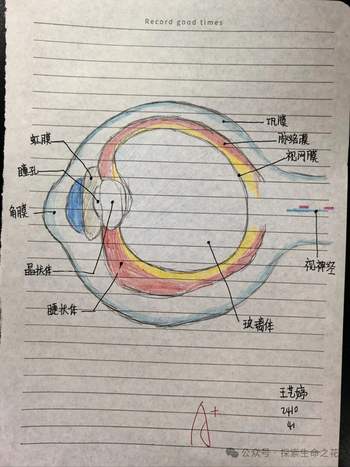 Record good times
巩膜
脉络膜
视网膜
虹膜
瞳孔
角膜
晶状体
睫状体
玻璃体
视神经
王艺婷
2410
41
A+
公众号·探索生命之花